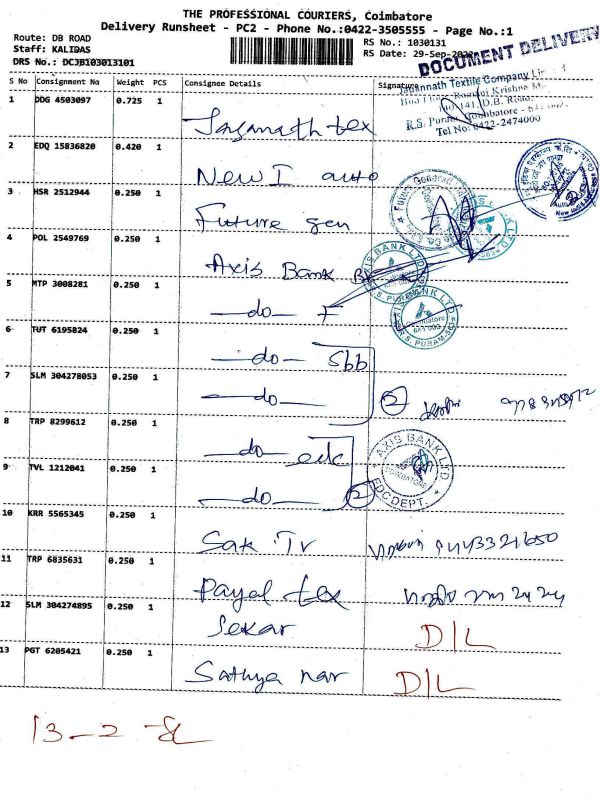 THE PROFESSIONAL COURIERS, Coimbatore
Delivery Runsheet - PC2 - Phone No.:0422-3505555 - Page No.:1
Route: DB ROAD
Staff: KALIDAS
DRS No.: DCJB103013101
RS No.: 1030131
RS Date: 29-Sep-2022
DOCUMENT DELIVERY
S No Consignment No Weight PCS Consignee Details Signature
Jagannath Textile Company
R.S. Puram, Coimbatore
Tel No: 0422-2474000
1 DDG 4503097 0.725 1 Jaganath tex
2 EDQ 15836820 0.420 1 New I auto
3 HSR 2512944 0.250 1 Future gen
4 POL 2549769 0.250 1 Axis Bank
AXIS BANK LTD
R.S. PURAM
5 MTP 3008281 0.250 1 -do- F
AXIS BANK LTD
Coimbatore
R.S. PURAM
6 TUT 6195824 0.250 1 -do- Sbb
7 SLM 304278053 0.250 1 -do- 2
8 TRP 8299612 0.250 1 -do-
AXIS BANK LTD
COIMBATORE
EDC DEPT.
9 TVL 1212041 0.250 1 -do- 2
10 KRR 5565345 0.250 1 Sak Tr
11 TRP 6835631 0.250 1 Payal tex
12 SLM 304274895 0.250 1 Sekar D/L
13 PGT 6205421 0.250 1 Sathya nar D/L
13-2